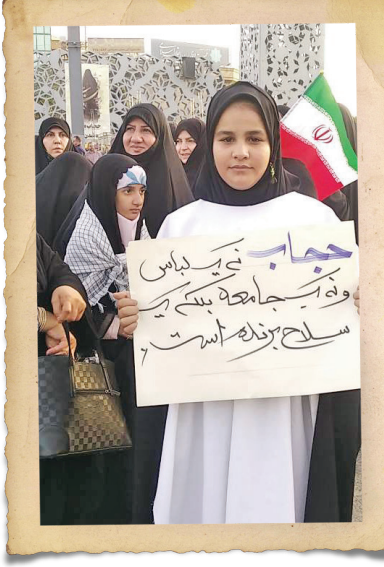 حجاب نه یک لباس
و نه یک جامعه بلکه یک
سلاح برنده است